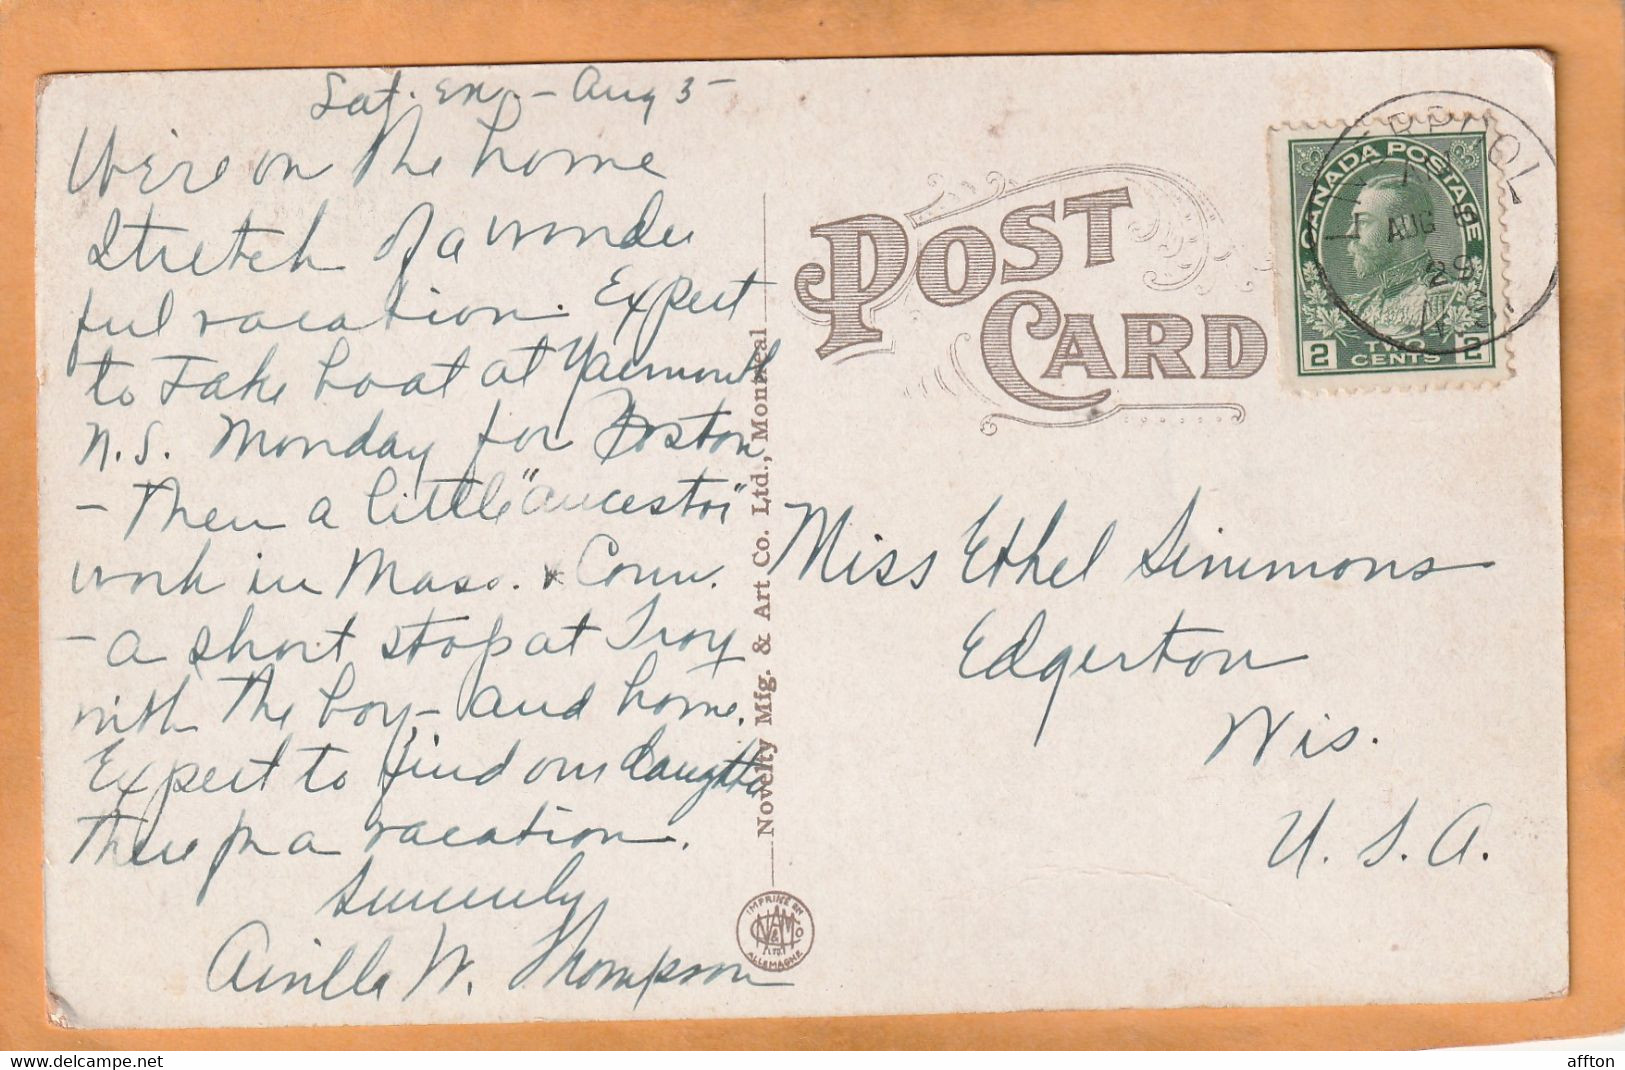 Sat. en. - Aug 3 -
We're on the home
stretch of a wonder
ful vacation. Expect
to take boat at Yarmouth
N.S. Monday for Boston
- Then a little "ancestor"
work in Mass. & Conn.
- a short stop at Troy
with the boy - and home.
Expect to find our daughter
there for a vacation.
Sincerely
W. Thompson
Novelty Mfg. & Art Co. Ltd., Montreal
IMPRIMÉ EN
ALLEMAGNE
POST
CARD
CANADA POSTAGE
2 TWO CENTS 2
AUG
29
Miss Ethel Simmons
Edgerton
Wis.
U. S. A.
affton